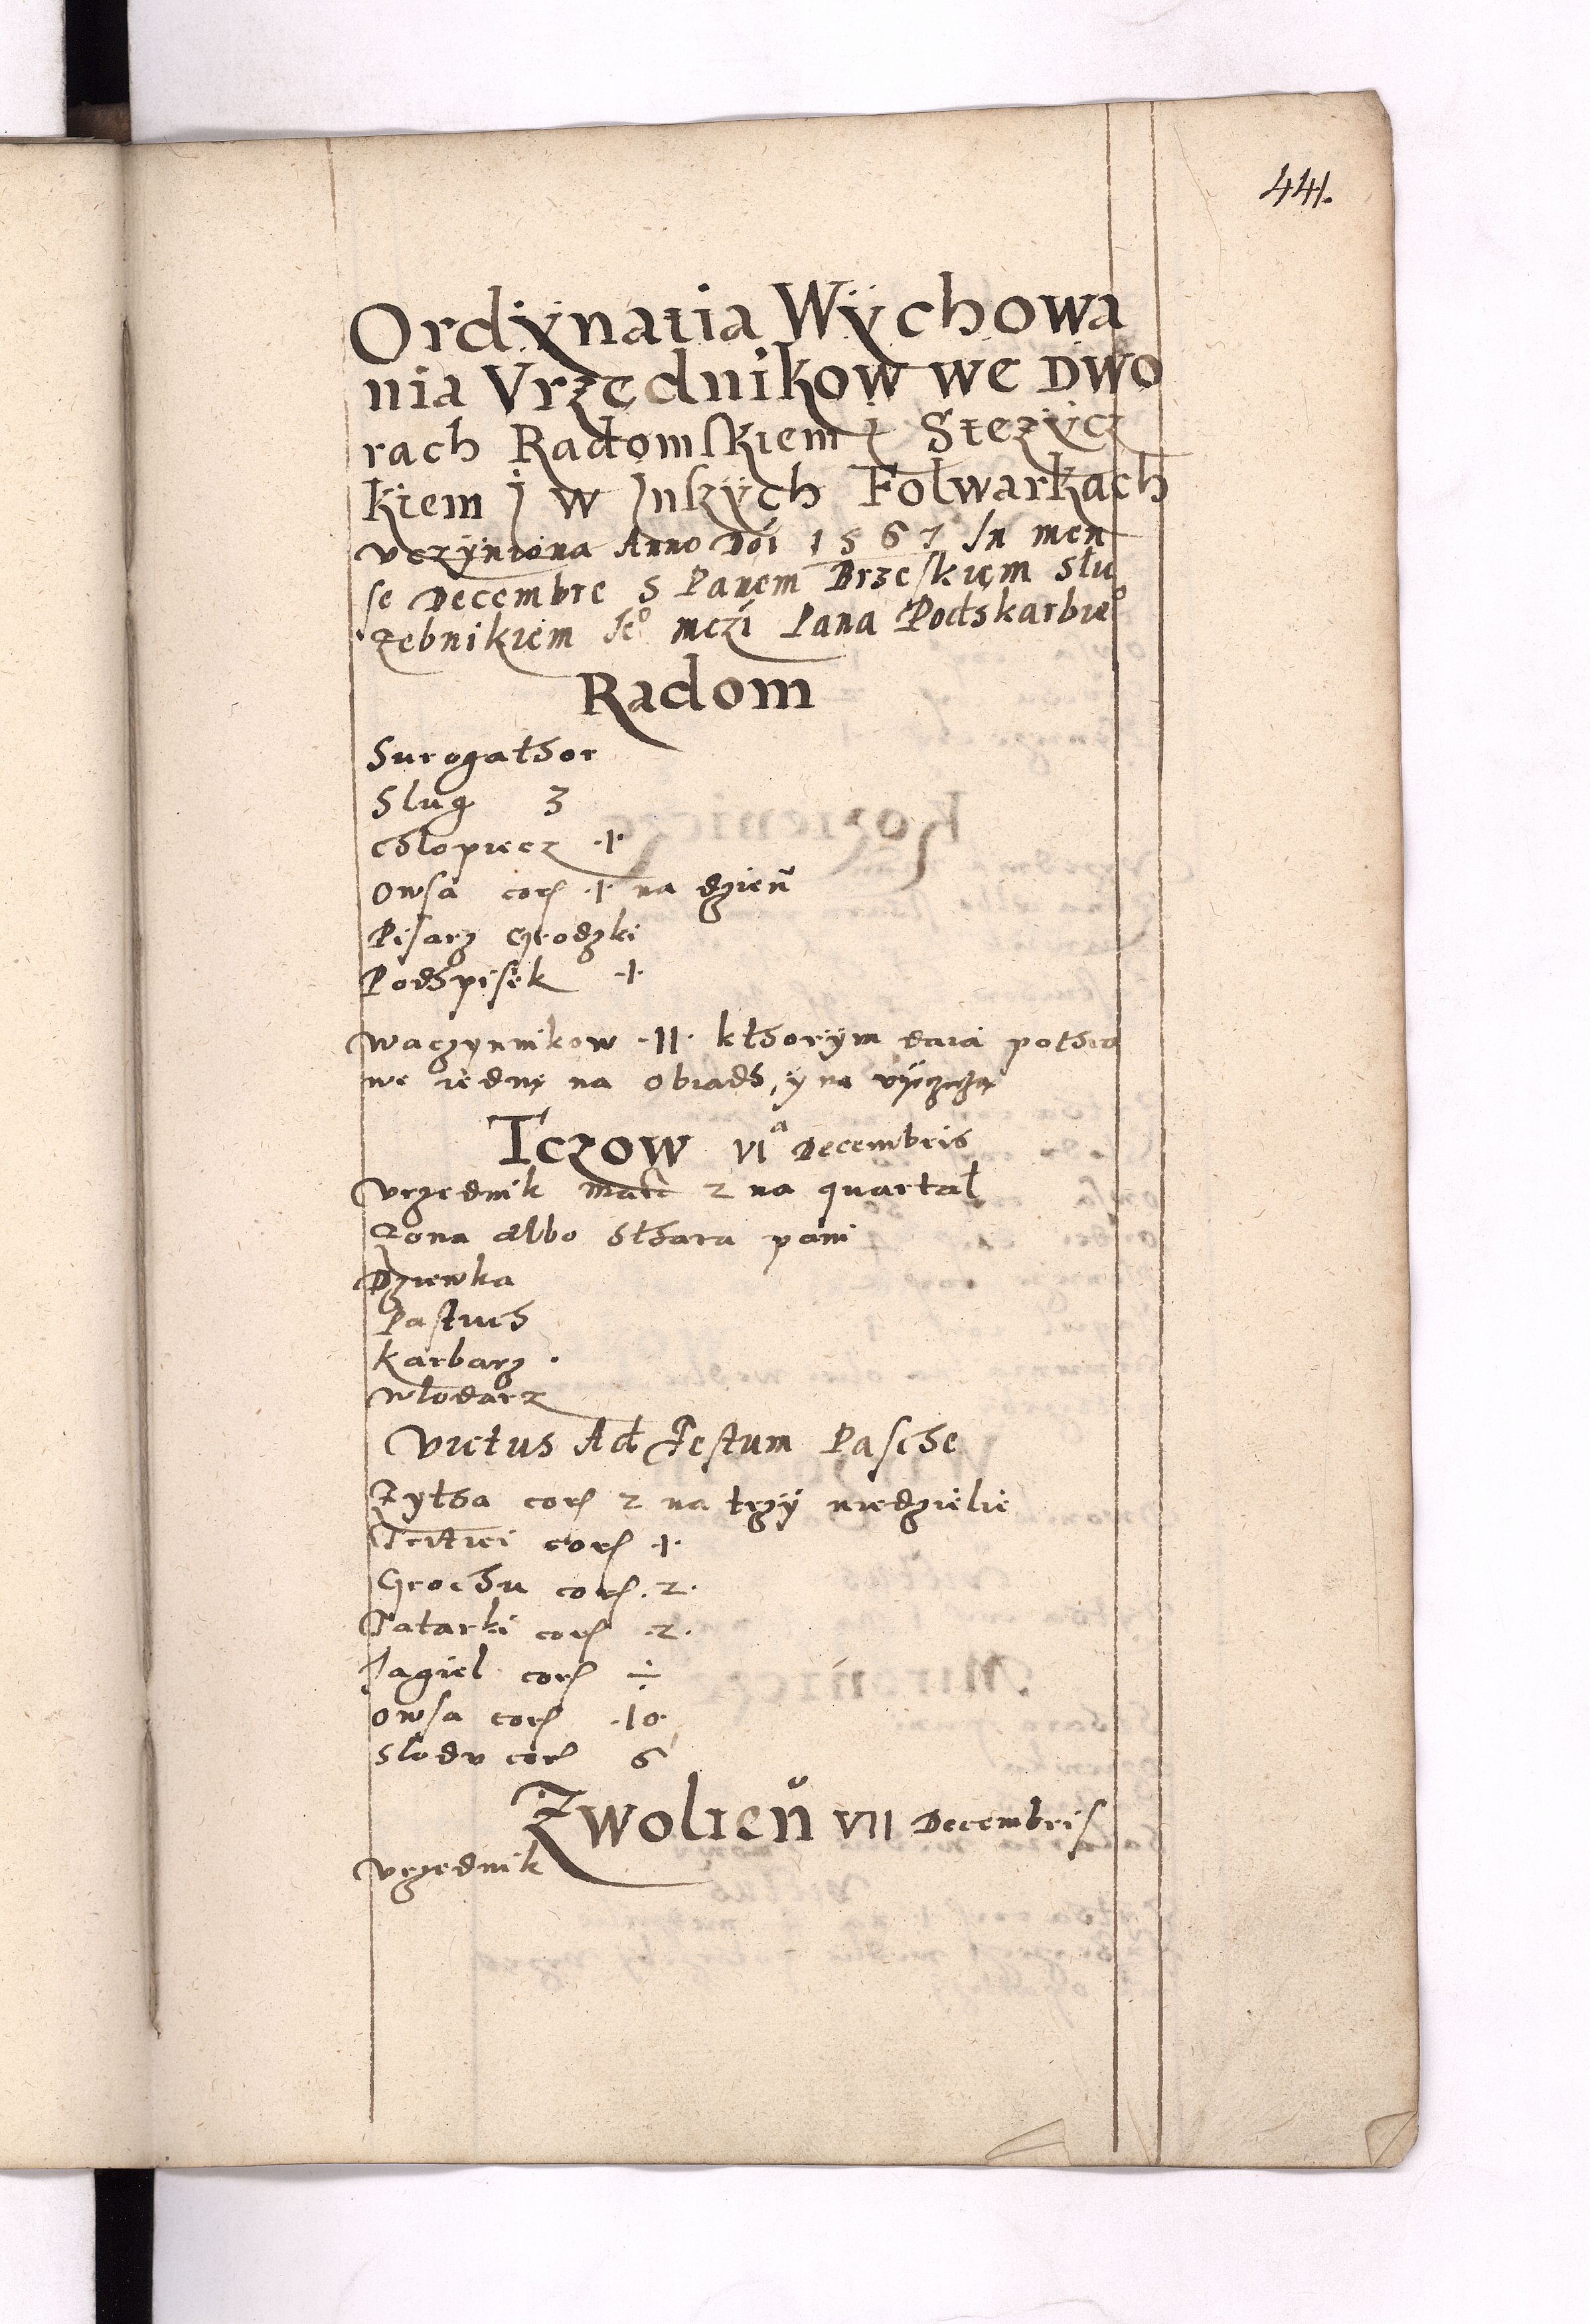 441.
Ordÿnatia Wÿchowa
nia Vrzędnikow we Dwo
rach Radomskiem i Stezÿcz
kiem j w Jnszÿch Folwarkach
vczÿniona Anno Dói 1567 In men
se Decembre s Panem Brzeskiem Słu
zebnikiem Je° mczi Pana Podskarbie°
Radom
Surogathor
Slug 3
chlopiecz 1
Owsa cor 1 na dzień
Pisarz Grodzki
Podspisek 1
waczynnikow 11 kthorym daią pothra
we iednę na obiadh, y na
Tczow VIª Decembris
vrzednik 2 na quartał
Zona albo sthara pani
Dziewka
Pastuch
Karbarz
włodarz
Victus Ad Festum Pasche
Zytha cor 2 na trzÿ niedzielie
Tritici cor 1
Grochu cor 2
Tatarki cor 2
Jagiel cor ÷
Owsa cor 10
Slodu cor 6
Zwolień VII Decembris
vrzednik